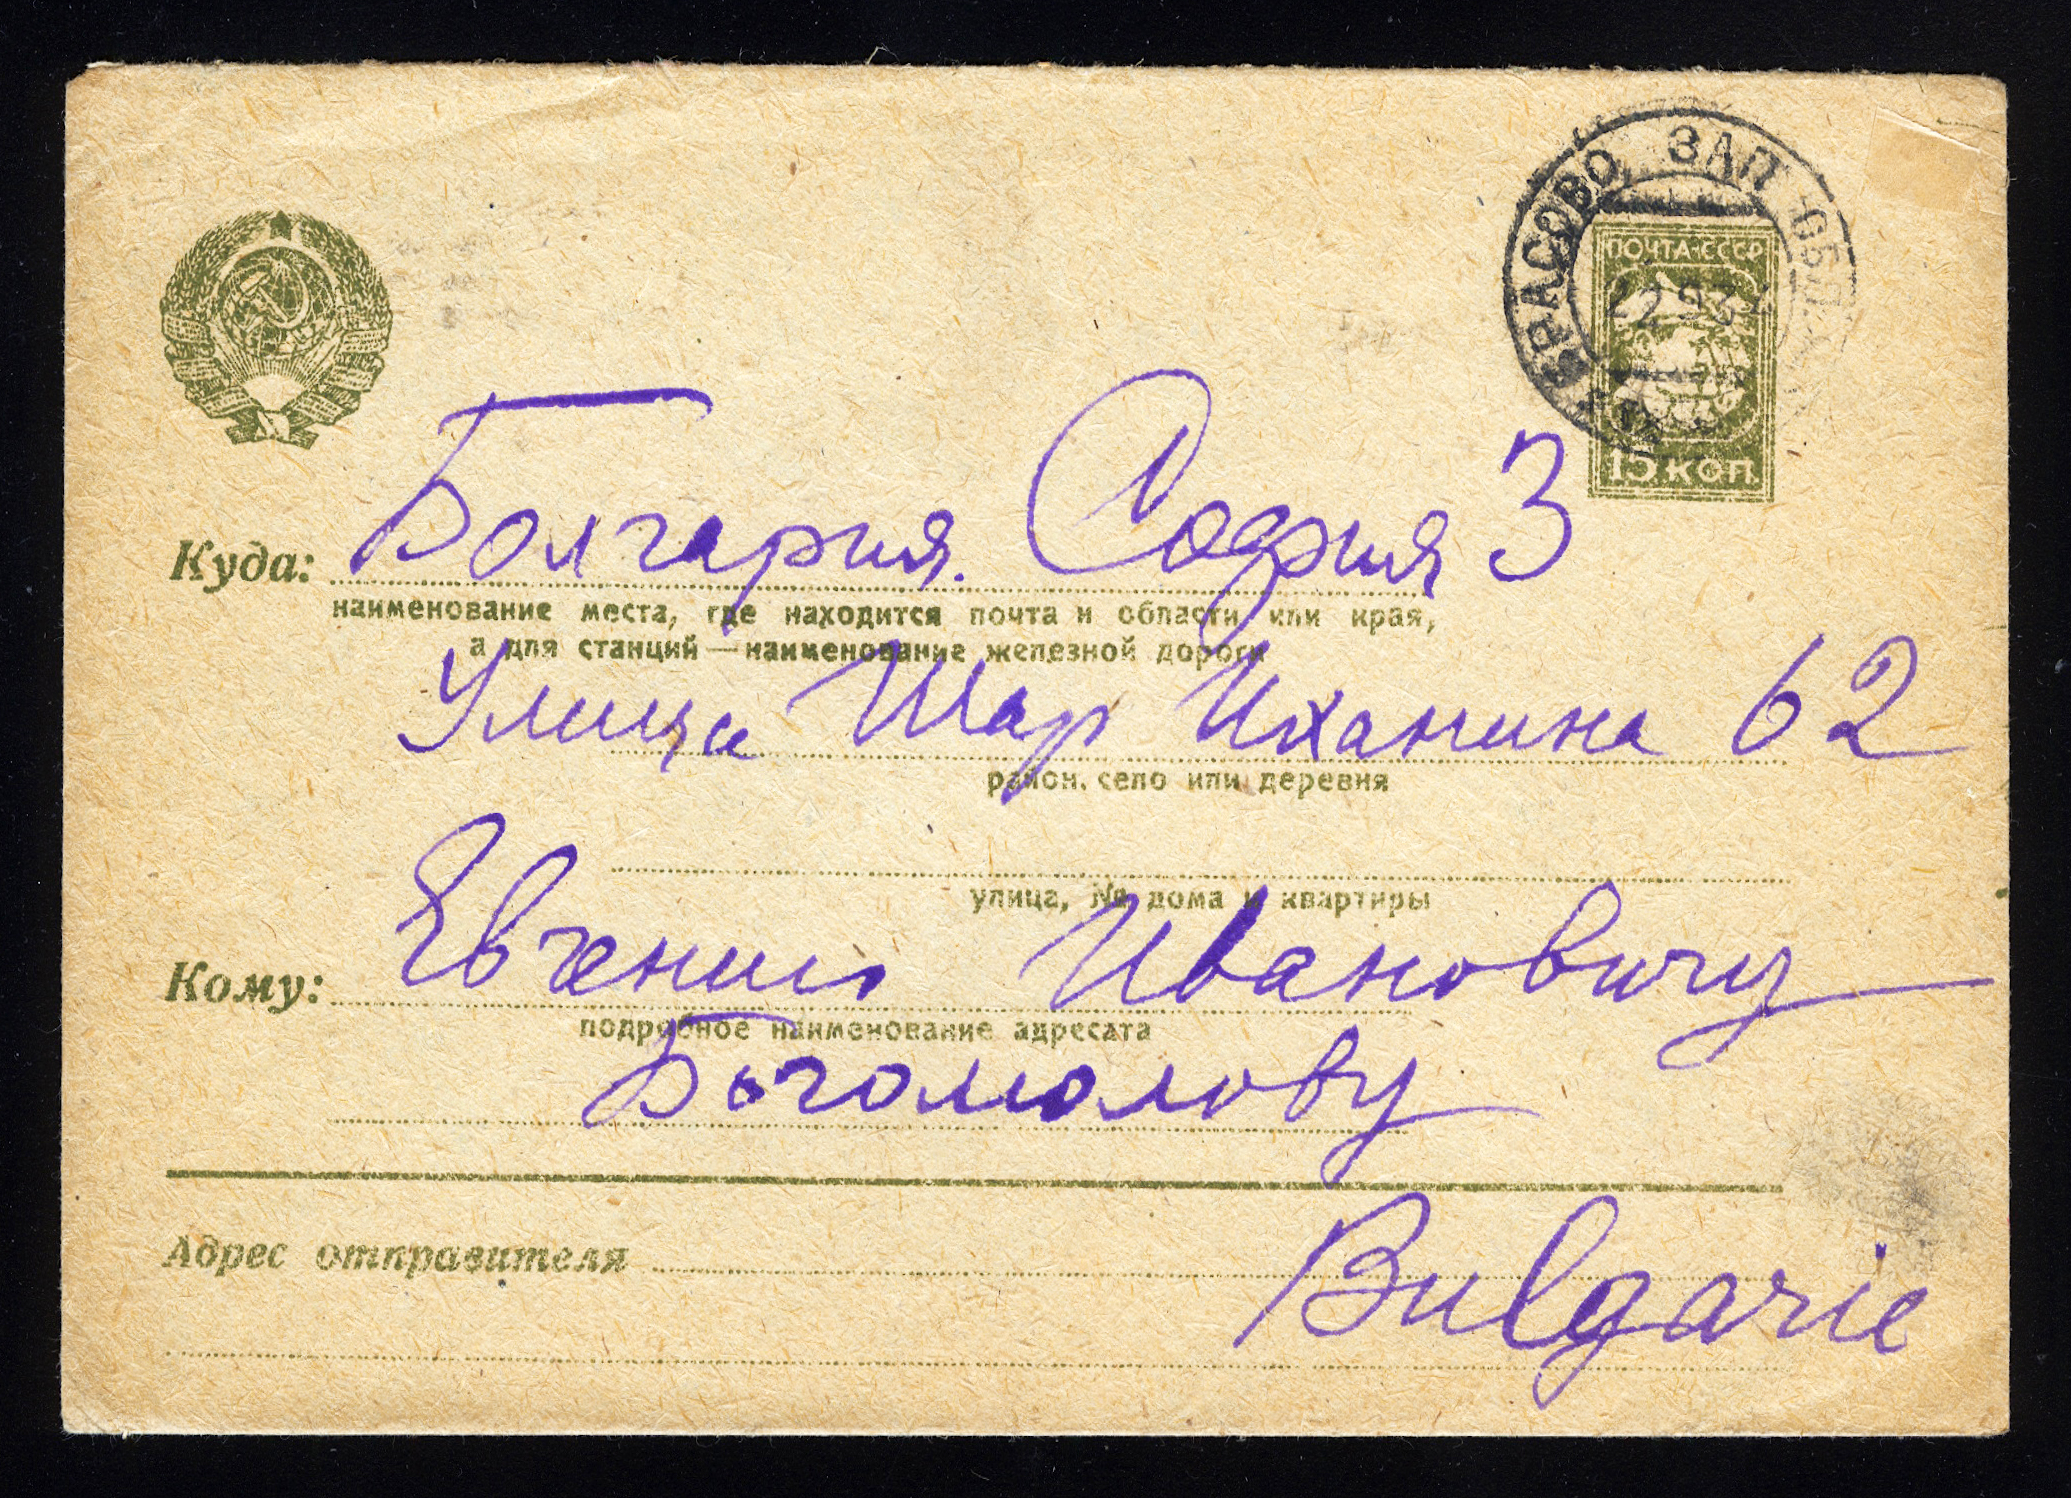 БРАСОВО ЗАП. ОБЛ.
ПОЧТА СССР
15 КОП.
Болгария. София 3
Куда:
наименование места, где находится почта и области или края,
а для станций — наименование железной дороги
Улица Шар 62
район, село или деревня
улица, № дома и квартиры
Евгению Ивановичу
Кому:
подробное наименование адресата
Богомолову
Адрес отправителя
Bulgarie